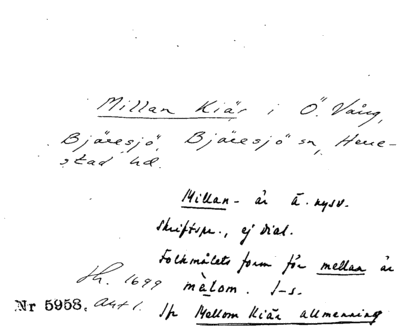 Millan Kiär i Ö. Vång,
Bjäresjö, Bjäresjö sn, Herre-
stad hd.
Millan- är ä. nysv.
skriftspr., ej dial.
Folkmålets form för mellan är
målom. I-s.
Jfr Mellom Kiär allmenning
Lh. 1699
Akt 1.
Nr 5958.